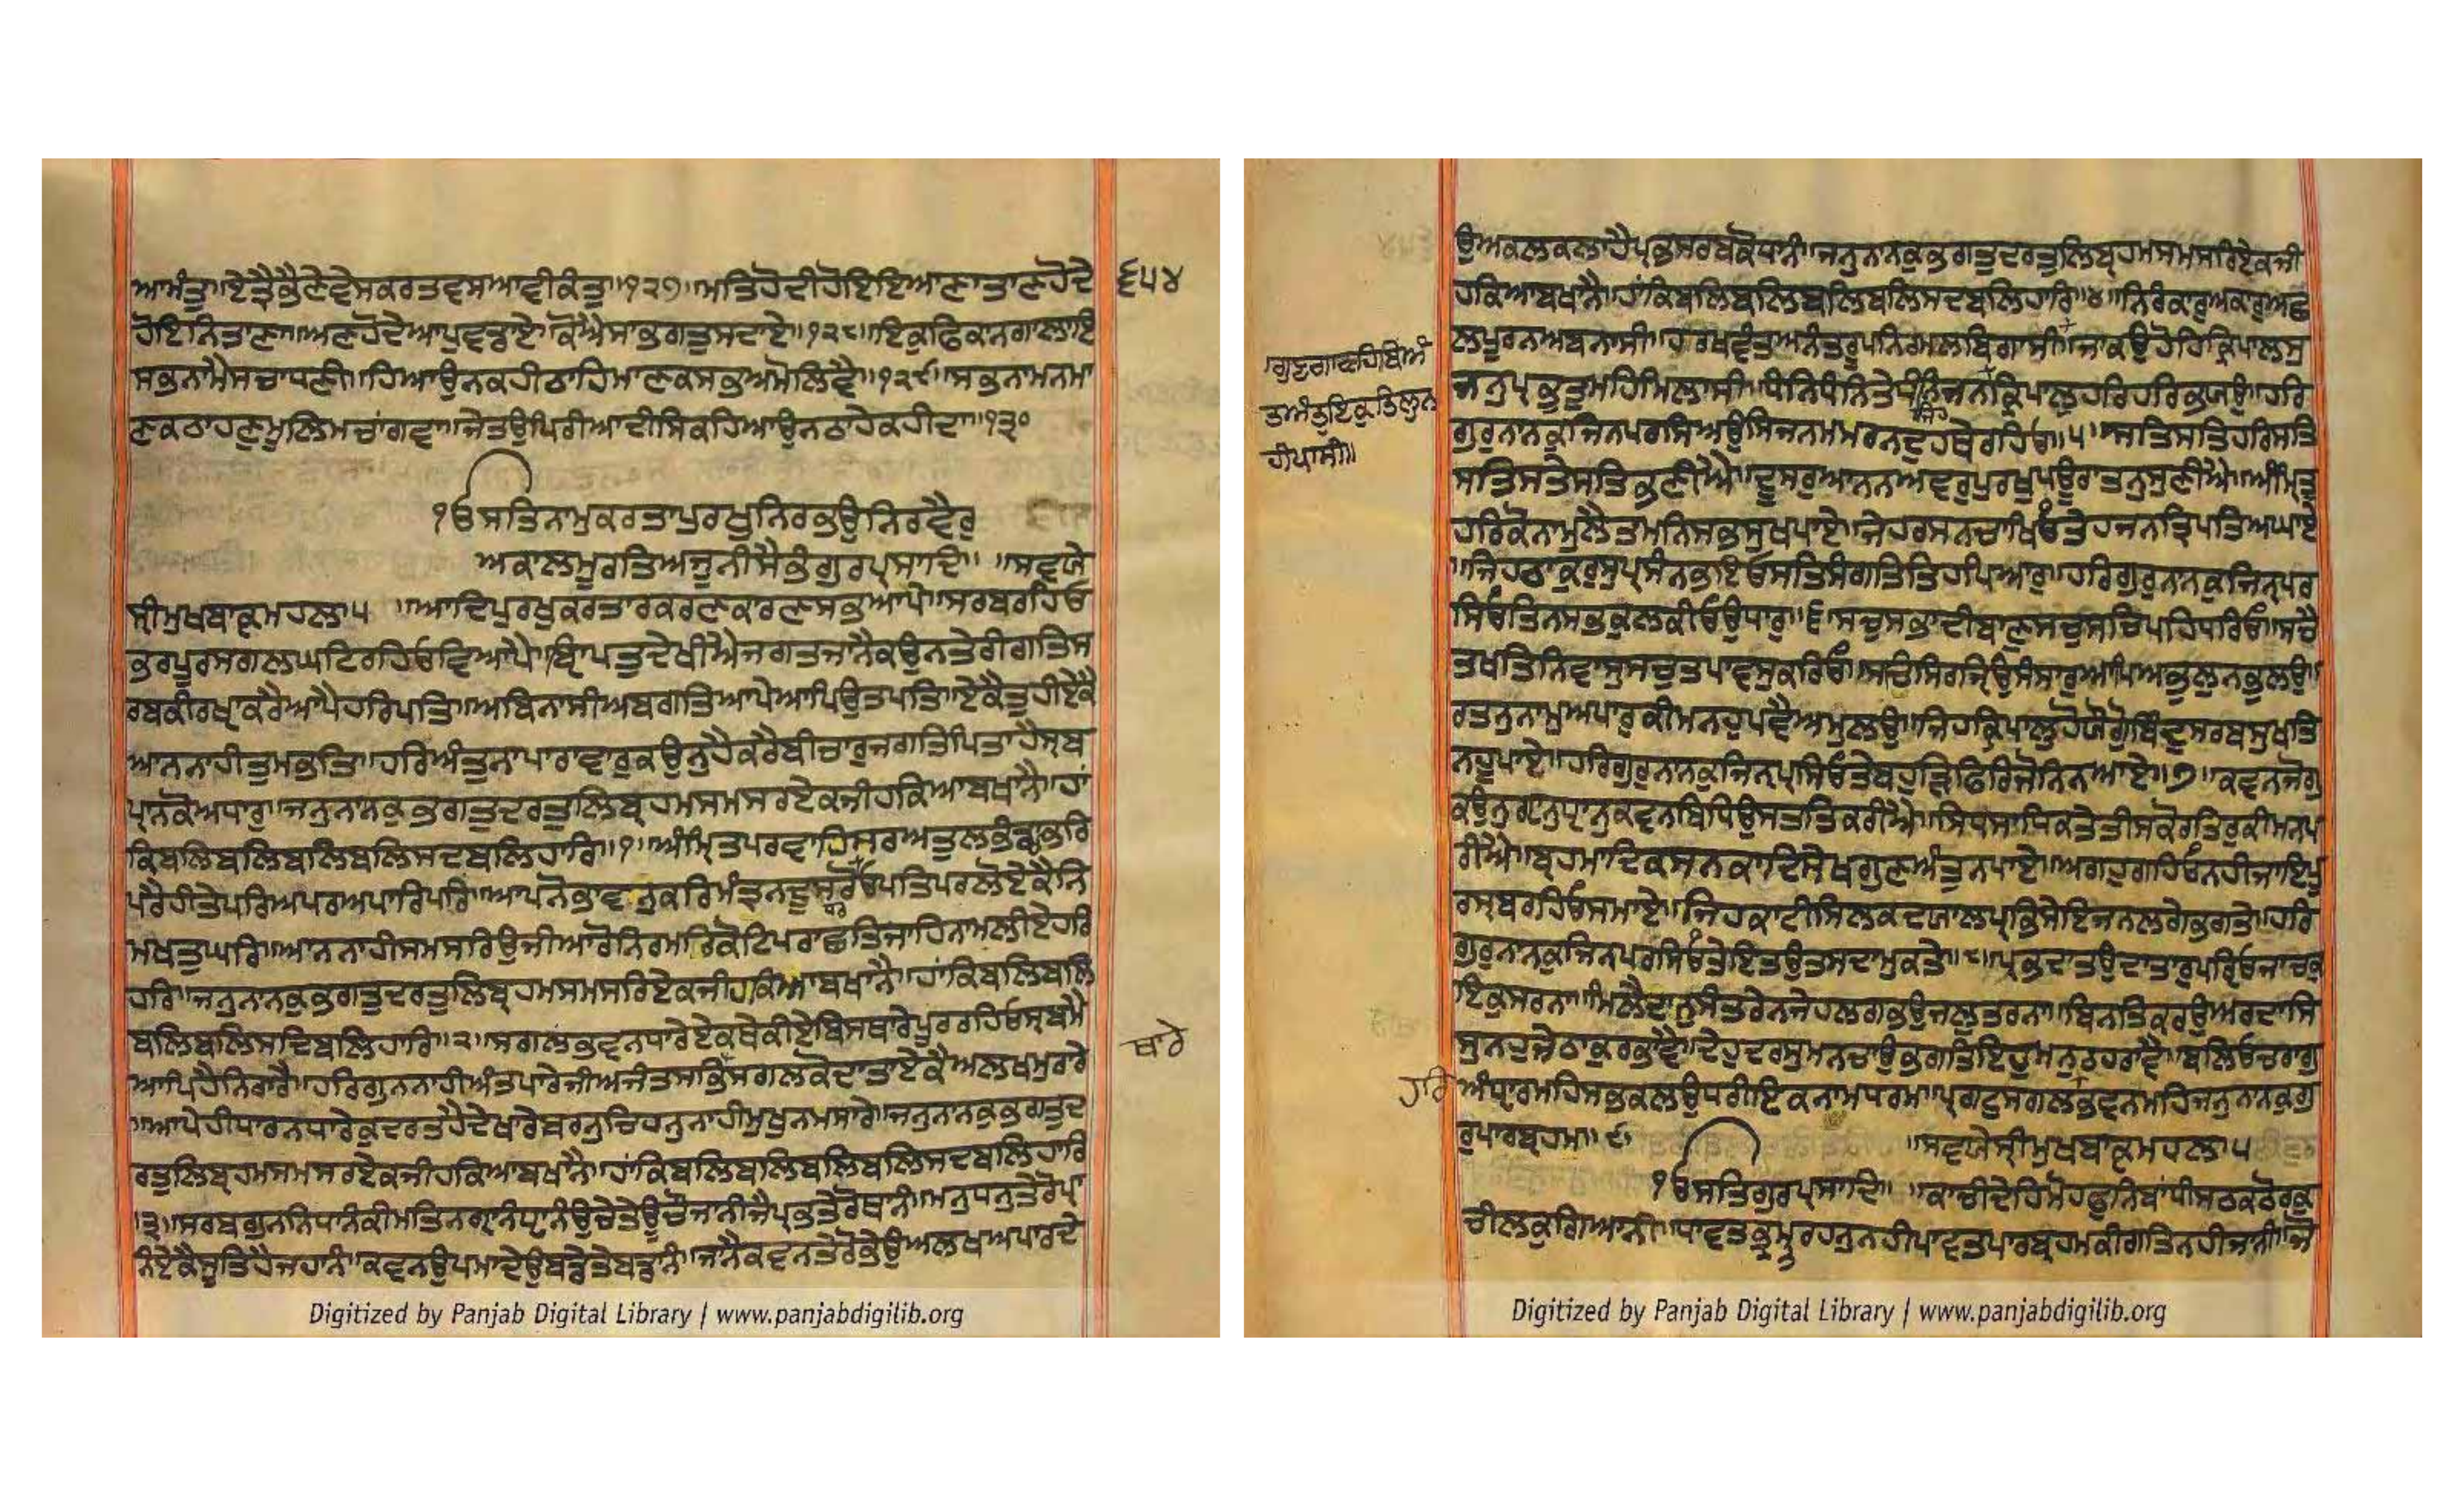 ਆਮੰਤੁ॥ਏਤ੍ਰੈਭੈਣੇਵੇਸਕਰਤਵਸਆਵੀਕੰਤੁ॥੧੨੭॥ਮਤਿਹੋਦੀਹੋਇਇਆਣਾਤਾਣਹੋਦੇ
੬੫੪
ਹੋਇਨਿਤਾਣਾ॥ਅਣਹੋਦੇਆਪੁਵੰਡਾਏ॥ਕੋਐਸਾਭਗਤੁਸਦਾਏ॥੧੨੮॥ਇਕੁਫਿਕਾਨਗਾਲਾਇ
ਸਭਨਾਮੈਸਚਾਧਣੀ॥ਹਿਆਉਨਕਹੀਠਾਹਿਮਾਣਕਸਭਅਮੋਲਿਵੈ॥੧੨੯॥ਸਭਨਾਮਨਮਾ
ਣਕਠਾਹਣੁਮੂਲਿਮਚਾਂਗਵਾ॥ਜੇਤਉਪਿਰੀਆਦੀਸਿਕਹਿਆਉਨਠਾਹੇਕਹੀਦਾ॥੧੩੦
੧ਓਸਤਿਨਾਮੁਕਰਤਾਪੁਰਖੁਨਿਰਭਉਨਿਰਵੈਰੁ
ਅਕਾਲਮੂਰਤਿਅਜੂਨੀਸੈਭੰਗੁਰਪ੍ਰਸਾਦਿ॥ ॥ਸਵਯੇ
ਸ੍ਰੀਮੁਖਬਾਕ੍ਯਮਹਲਾ੫ ॥ਆਦਿਪੁਰਖੁਕਰਤਾਰਕਰਣਕਾਰਣਸਭਆਪੇ॥ਸਰਬਰਹਿਓ
ਭਰਪੂਰਸਗਲਘਟਿਰਹਿਓਵਿਆਪੇ॥ਬ੍ਯਾਪਤੁਦੇਖੀਐਜਗਤਜਾਨੈਕਉਨਤੇਰੀਗਤਿਸ
ਰਬਕੀਰਖ੍ਯਾਕਰੈਆਪੈਹਰਿਪਤਿ॥ਅਬਿਨਾਸੀਅਬਗਤਿਆਪੇਆਪਿਉਤਪਤਿ॥ਏਕੈਤੂਹੀਏਕੈ
ਆਨਨਾਹੀਤੁਮਭਤਿ॥ਹਰਿਅੰਤੁਨਾਪਾਰਾਵਾਰੁਕਉਨੁਹੈਕਰੈਬੀਚਾਰੁਜਗਤਿਪਿਤਾਹੈਸ੍ਰਬ
ਪ੍ਰਾਨਕੋਅਧਾਰੁ॥ਜਨੁਨਾਨਕੁਭਗਤੁਦਰਤੁਲਿਬ੍ਰਹਮਸਮਸਰਏਕਜੀਹਕਿਆਬਖਾਨੈ॥ਹਾਂ
ਕਿਬਲਿਬਲਿਬਲਿਬਲਿਸਦਬਲਿਹਾਰਿ॥੧॥ਅੰਮ੍ਰਿਤਪਰਵਾਹਿਸਰਅਤੁਲਭੰਡਾਭਰਿ
ਪਰੈਹੀਤੇਪਰਿਅਪਰਅਪਾਰਿਪਰਿ॥ਆਪਨੋਭਾਵਨੁਕਰਿਮੰਤ੍ਰਨਦੂਸਰੋਓਪਤਿਪਰਲੋਏਕੈਨਿ
ਮਖਤੁਘਰਿ॥ਆਨਨਾਹੀਸਮਸਰਿਉਜੀਆਰੋਨਿਰਮਰਿਕੋਟਿਪਰਾਛਤਿਜਾਹਿਨਾਮਲੀਏਹਰਿ
ਹਰਿ॥ਜਨੁਨਾਨਕੁਭਗਤੁਦਰਤੁਲਿਬ੍ਰਹਮਸਮਸਰਿਏਕਜੀਹਕਿਆਬਖਾਨੈ॥ਹਾਂਕਿਬਲਿਬਲਿ
ਬਲਿਬਲਿਸਦਿਬਲਿਹਾਰਿ॥੨॥ਸਗਲਭਵਨਧਾਰੇਏਕਥੇਕੀਏਬਿਸਥਾਰੇਪੂਰਰਹਿਓਸ੍ਰਬਮੈ
ਥਾਰੇ
ਆਪਿਹੈਨਿਰਾਰੈ॥ਹਰਿਗੁਨਨਾਹੀਅੰਤਪਾਰੇਜੀਅਜੰਤਸਭਿਸਗਲਕੋਦਾਤਾਏਕੈਅਲਖਮੁਰਾਰੇ
॥ਆਪੇਹੀਧਾਰਨਧਾਰੇਕੁਦਰਤਹੈਦੇਖਾਰੇਬਰਨੁਚਿਹਨੁਨਾਹੀਮੁਖੁਨਮਸਾਰੇ॥ਜਨੁਨਾਨਕੁਭਗਤੁਦ
ਰਤੁਲਿਬ੍ਰਹਮਸਮਸਰਏਕਜੀਹਕਿਆਬਖਾਨੈ॥ਹਾਂਕਿਬਲਿਬਲਿਬਲਿਬਲਿਸਦਬਲਿਹਾਰਿ
॥੩॥ਸਰਬਗੁਨਨਿਧਾਨੰਕੀਮਤਿਨਗ੍ਯਾਨੰਧ੍ਯਾਨੰਉਚੇਤੇਉਚੌਜਾਨੀਜੈਪ੍ਰਭਤੇਰੋਥਾਨੰ॥ਮਨੁਧਨੁਤੇਰੋਪ੍ਰਾ
ਨੰਏਕੈਸੂਤਿਹੈਜਹਾਨੰ॥ਕਵਨਉਪਮਾਦੇਉਬਡੇਤੇਬਡਾਨੰ॥ਜਾਨੈਕਵਨਤੇਰੋਭੇਉਅਲਖਅਪਾਰਦੇ
Digitized by Panjab Digital Library | www.panjabdigilib.org
ਉਅਕਲਕਲਾਹੈਪ੍ਰਭਸਰਬਕੋਧਾਨੰ॥ਜਨੁਨਾਨਕੁਭਗਤੁਦਰਤੁਲਿਬ੍ਰਹਮਸਮਸਰਿਏਕਜੀ
ਹਕਿਆਬਖਾਨੈ॥ਹਾਂਕਿਬਲਿਬਲਿਬਲਿਬਲਿਸਦਬਲਿਹਾਰਿ॥੪॥ਨਿਰੰਕਾਰੁਅਕਾਰੁਅਛ
ਲਪੂਰਨਅਬਨਾਸੀ॥ਹਰਖਵੰਤੁਅਨੰਤਰੂਪਨਿਰਮਲਬਿਗਾਸੀ॥ਜਾਕਉਹੋਹਿਕ੍ਰਿਪਾਲਸੁ
ਗੁਣਗਾਵਹਿਬਿਅੰ
ਤਅੰਤੁਇਕੁਤਿਲੁਨ
ਹੀਪਾਸੀ॥
ਜਨੁਪ੍ਰਭਤੁਮਹਿਮਿਲਾਸੀ॥ਧੰਨਿਧੰਨਿਤੇਧੰਨਿਜਨਕ੍ਰਿਪਾਲੁਹਰਿਹਰਿਭਯਉ॥ਹਰਿ
ਗੁਰੁਨਾਨਕੁਜਿਨਪਰਸਿਅਉਸਿਜਨਮਮਰਨਦੁਹਥੇਰਹਿਓ॥੫॥ਸਤਿਸਤਿਹਰਿਸਤਿ
ਸਤਿਸਤੇਸਤਿਭਣੀਐ॥ਦੂਸਰੁਆਨਨਅਵਰੁਪੁਰਖੁਪਊਰਾਤਨੁਸੁਣੀਐ॥ਅੰਮ੍ਰਿਤੁ
ਹਰਿਕੋਨਾਮੁਲੈਤਮਨਿਸਭਸੁਖਪਾਏ॥ਜੇਹਰਸਨਚਾਖਿਓਤੇਹਜਨਤ੍ਰਿਪਤਿਅਘਾਏ
॥ਜਿਹਠਾਕੁਰੁਸੁਪ੍ਰਸੰਨਭਇਓਸਤਿਸੰਗਤਿਤਿਹਪਿਆਰੁ॥ਹਰਿਗੁਰੁਨਾਨਕੁਜਿਨ੍ਹਪਰ
ਸਿਓਤਿਨਸਭਕੁਲਕੀਓਉਧਾਰੁ॥੬॥ਸਚੁਸਭਾਦੀਬਾਣੁਸਚੁਸਚਿਪਹਿਧਰਿਓ॥ਸਚੈ
ਤਖਤਿਨਿਵਾਸੁਸਚੁਤਪਾਵਸੁਕਰਿਓ॥ਸਚਿਸਿਰਜ੍ਯਿਉਸੰਸਾਰੁਆਪਿਅਭੁਲੁਨਭੁਲਉ॥
ਰਤਨੁਨਾਮੁਅਪਾਰੁਕੀਮਨਹੁਪਵੈਅਮੁਲਉ॥ਜਿਹਕ੍ਰਿਪਾਲੁਹੋਯੋਗੁੋਬਿੰਦੁਸਰਬਸੁਖਤਿ
ਨਹੂਪਾਏ॥ਹਰਿਗੁਰੁਨਾਨਕੁਜਿਨ੍ਹਪ੍ਰਸਿਓਤੇਬਹੁੜਿਫਿਰਿਜੋਨਿਨਆਏ॥੭॥ਕਵਨਜੋਗੁ
ਕਉਨੁਗ੍ਯਾਨੁਧ੍ਯਾਨੁਕਵਨਬਿਧਿਉਸਤਤਿਕਰੀਐ॥ਸਿਧਸਾਧਿਕਤੇਤੀਸਕੋਰਤਿਰੁਕੀਮਨਪ
ਰੀਐ॥ਬ੍ਰਹਮਾਦਿਕਸਨਕਾਦਿਸੇਖਗੁਣਅੰਤੁਨਪਾਏ॥ਅਗਹੁਗਹਿਓਨਹੀਜਾਇਪੂ
ਰਸ੍ਰਬਰਹਿਓਸਮਾਏ॥ਜਿਹਕਾਟੀਸਿਲਕਦਯਾਲਪ੍ਰਭਿਸੇਇਜਨਲਗੇਭਗਤੇ॥ਹਰਿ
ਗੁਰੁਨਾਨਕੁਜਿਨਪਰਸਿਓਤੇਇਤਉਤਸਦਾਮੁਕਤੇ॥੮॥ਪ੍ਰਭਦਾਤਉਦਾਤਾਰੁਪਰਿਓਜਾਚਕੁ
ਇਕੁਸਰਨਾ॥ਮਿਲੈਦਾਨੁਸੰਤਰੇਨਜੇਹਲਗਭਉਜਲੁਤਰਨਾ॥ਬਿਨਤਿਕਰਉਅਰਦਾਸਿ
ਸੁਨਹੁਜੇਠਾਕੁਰਭਾਵੈ॥ਦੇਹੁਦਰਸੁਮਨਚਾਉਭਗਤਿਇਹੁਮਨੁਠਹਰਾਵੈ॥ਬਲਿਓਚਰਾਗੁ
ਹਰਿ
ਅੰਧ੍ਯਾਰਮਹਿਸਭਕਲਉਧਰੀਇਕਨਾਮਧਰਮ॥ਪ੍ਰਗਟੁਸਗਲਭਵਨਮਹਿਜਨੁਨਾਨਕੁਗੁ
ਰੁਪਾਰਬ੍ਰਹਮ॥੯॥ ॥ਸਵਯੇਸ੍ਰੀਮੁਖਬਾਕ੍ਯਮਹਲਾ੫
੧ਓਸਤਿਗੁਰਪ੍ਰਸਾਦਿ॥ ॥ਕਾਚੀਦੇਹਮੋਹਫੁਨਿਬਾਂਧੀਸਠਕਠੋਰਕੁ
ਚੀਲਕੁਗਿਆਨੀ॥ਧਾਵਤਭ੍ਰਮੁਰਹਨੁਨਹੀਪਾਵਤਪਾਰਬ੍ਰਹਮਕੀਗਤਿਨਹੀਜਾਨੀ॥ਜੋ
Digitized by Panjab Digital Library | www.panjabdigilib.org